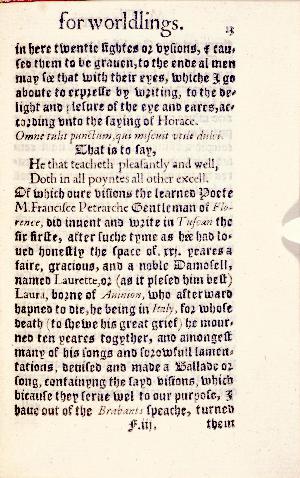 for worldlings.
13
in here twentie sightes or vysions, & cau-
sed them to be grauen, to the ende al men
may see that with their eyes, whiche I go
aboute to expresse by writing, to the de-
light and plesure of the eye and eares, ac-
cording vnto the saying of Horace.
Omne tulit punctum, qui miscuit vtile dulci.
That is to say,
He that teacheth pleasantly and well,
Doth in all poyntes all other excell.
Of which oure visions the learned Poete
M. Francisce Petrarche Gentleman of Flo-
rence, did inuent and write in Tuscan the
six firste, after suche tyme as hee had lo-
ued honestly the space of .xxj. yeares a
faire, gracious, and a noble Damosell,
named Laurette, or (as it plesed him best)
Laura, borne of Auinion, who afterward
hapned to die, he being in Italy, for whose
death (to shewe his great grief) he mour-
ned ten yeares togyther, and amongest
many of his songs and sorowfull lamen-
tations, deuised and made a Ballade or
song, containyng the sayd visions, which
bicause they serue wel to our purpose, I
haue out of the Brabants speache, turned
F.iij. them